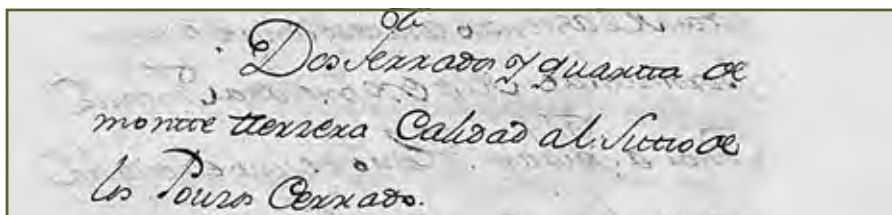 Dos ferrados y quartta de
montte tterzera Calidad al Sittio de
los Pouzos Cerrado.